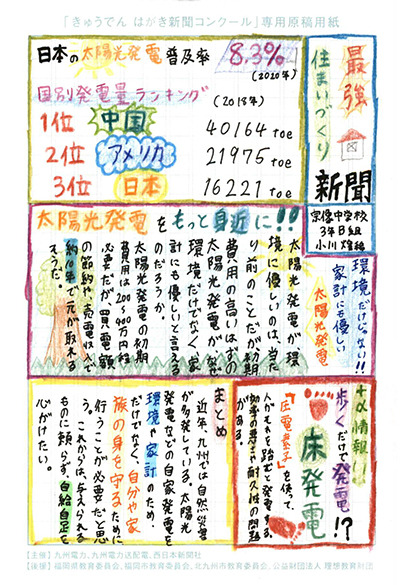 「きゅうでん はがき新聞コンクール」専用原稿用紙
最強
住まいづくり
新聞
宗像中学校
3年B組
小川
日本の太陽光発電普及率 8.3%
(2020年)
国別発電量ランキング (2018年)
1位 中国 40164 toe
2位 アメリカ 21975 toe
3位 日本 16221 toe
太陽光発電をもっと身近に!!
環境だけじゃない!!
家計にも優しい
太陽光発電
太陽光発電が環
境に優しいのは、当た
り前のことだが初期
費用の高いはずの
太陽光発電がなぜ
環境だけでなく、家
計にも優しいと言える
のだろうか。
太陽光発電の初期
費用は200〜400万円程
必要だが、買電額
の節約や、売電収入で
約10年で元が取れる
そうだ。
+α情報!
歩くだけで発電!?
床発電
「圧電素子」を使って、
人がそれを踏むと発電する。
効率の悪さや耐久性の問題
がある。
まとめ
近年、九州では自然災害
が多発している。太陽光
発電などの自家発電を
環境や家計のため、
だけでなく、自分や家
族の身を守るために
行うことが必要だと思
う。これからは、与えられる
ものに頼らず、自給自足を
心がけたい。
【主催】九州電力、九州電力送配電、西日本新聞社
【後援】福岡県教育委員会、福岡市教育委員会、北九州市教育委員会、公益財団法人 理想教育財団